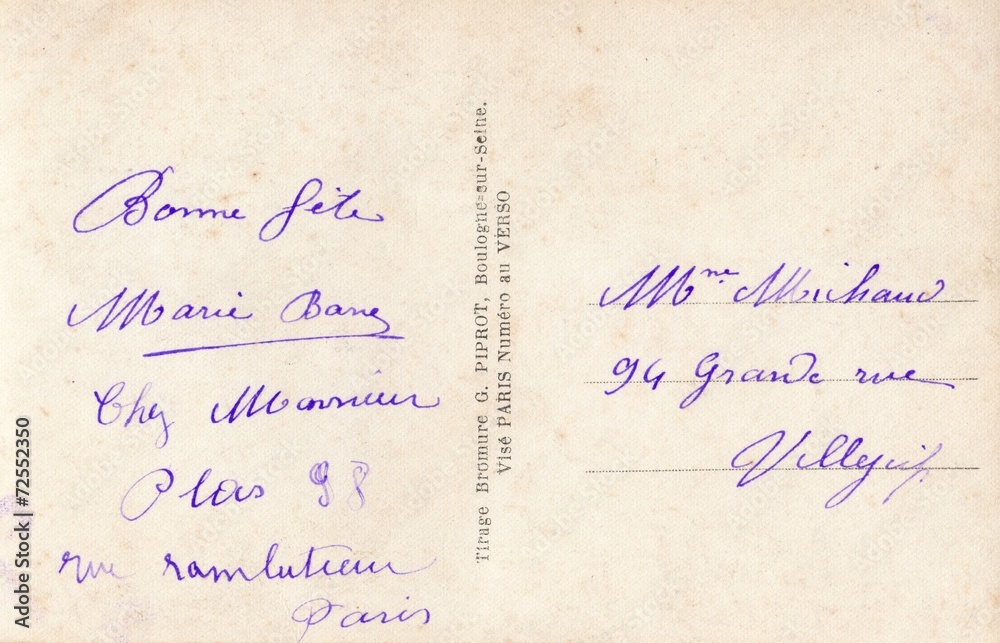 Bonne fête
Marie Barrez
Chez Monsieur
Plas 98
rue rambuteau
Paris
Tirage Bromure G. PIPROT, Boulogne-sur-Seine.
Visé PARIS Numéro au VERSO
Mme Michaud
94 Grande rue
Villejuif
Adobe Stock | #72552350